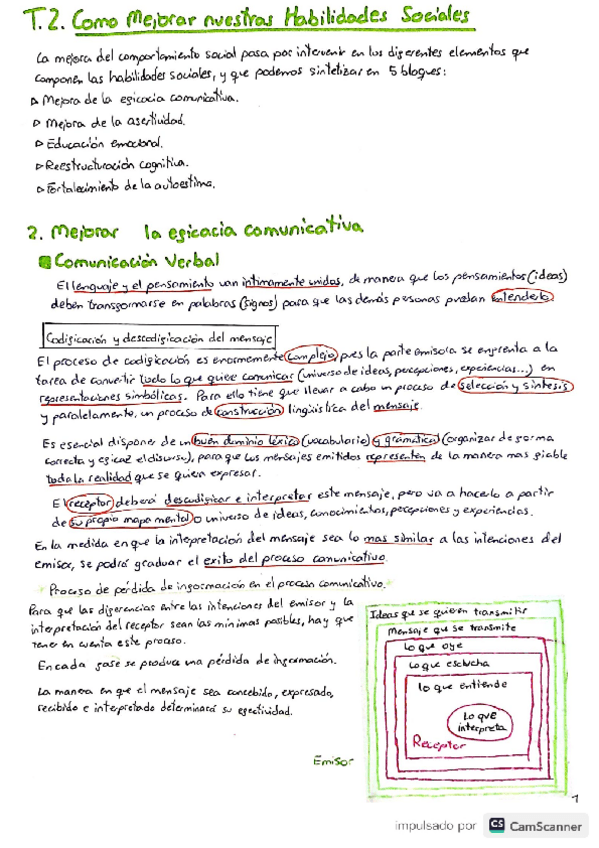 T.2. Como Mejorar nuestras Habilidades Sociales
La mejora del comportamiento social pasa por intervenir en los diferentes elementos que
componen las habilidades sociales, y que podemos sintetizar en 5 bloques:
▷ Mejora de la eficacia comunicativa.
▷ Mejora de la asertividad.
▷ Educación emocional.
▷ Reestructuración cognitiva.
▷ Fortalecimiento de la autoestima.
2. Mejorar la eficacia comunicativa
Comunicación Verbal
El lenguaje y el pensamiento van intimamente unidos, de manera que los pensamientos (ideas)
deben transformarse en palabras (signos) para que las demás personas puedan entenderlo
Codificación y descodificación del mensaje
El proceso de codificación es enormemente complejo, pues la parte emisora se enfrenta a la
tarea de convertir todo lo que quiere comunicar (universo de ideas, percepciones, experiencias...) en
representaciones simbólicas. Para ello tiene que llevar a cabo un proceso de selección y sintesis
y paralelamente, un proceso de construcción lingüistica del mensaje.
Es esencial disponer de un buen dominio léxico (vocabulario) y gramatical (organizar de forma
correcta y eficaz el discurso), para que los mensajes emitidos representen de la manera mas fiable
toda la realidad que se quiera expresar.
El receptor deberá descodificar e interpretar este mensaje, pero va a hacerlo a partir
de su propio mapa mental o universo de ideas, conocimientos, percepciones y experiencias.
En la medida en que la intepretación del mensaje sea lo mas similar a las intenciones del
emisor, se podrá graduar el exito del proceso comunicativo.
Proceso de pérdida de información en el proceso comunicativo.
Para que las diferencias entre las intenciones del emisor y la
interpretación del receptor sean las mínimas posibles, hay que
tener en cuenta este proceso.
En cada fase se produce una pérdida de información.
La manera en que el mensaje sea concebido, expresado,
recibido e interpretado determinará su efectividad.
Ideas que se quieren transmitir
Mensaje que se transmite
Lo que oye
Lo que escucha
Lo que entiende
Lo que
interpreta
Receptor
Emisor
1
impulsado por CS CamScanner